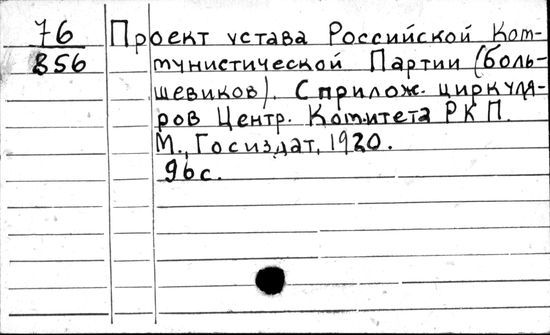 76
856
Проект устава Российской Ком-
мунистической Партии (боль-
шевиков). С прилож. циркуля-
ров Центр. Комитета РКП.
М., Госиздат, 1920.
96 с.